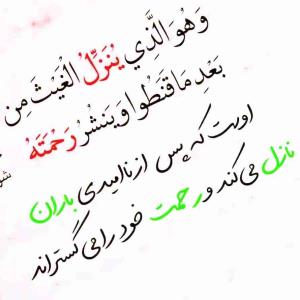 وَهُوَ الَّذِي يُنَزِّلُ الْغَيْثَ مِن
بَعْدِ مَا قَنَطُوا وَيَنشُرُ رَحْمَتَهُ
اوست که پس از ناامیدی باران
نازل می‌کند و رحمت خود را می گستراند